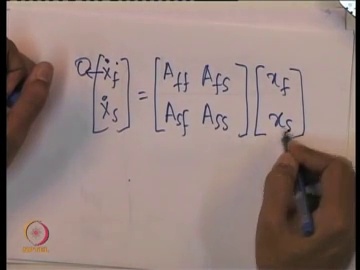 Q [ẋ_f ẋ_s] = [A_ff A_fs; A_sf A_ss] [x_f x_s]
NPTEL